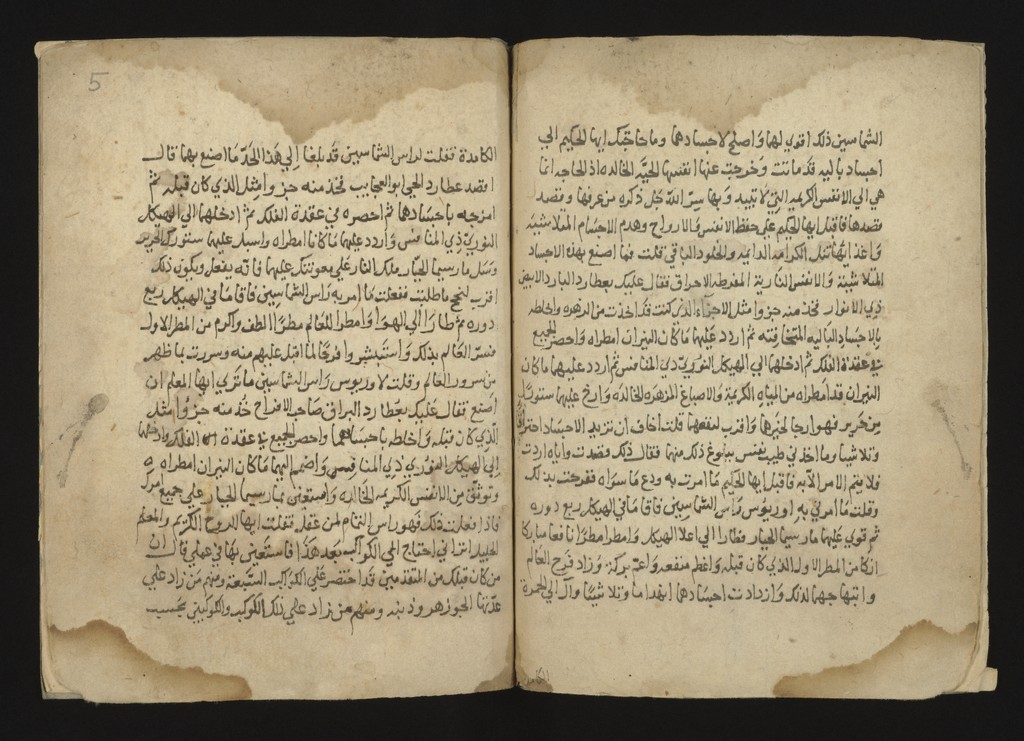 الشماسين ذلك اقوي لهما واصلح لاجسادهما وما حاجتك ايها الحكيم الي
اجساد باليه قد ماتت وخرجت عنها انفسها الحيّة الخالده اذ الحاجه انما
هي الي الانفس الكريمه التي لا تبيد وبها سرّ الله جل ذكره من عرفها وقصد
قصدها فاقبل ايها الحكيم علي حفظ الانفس والارواح وهدم الاجسام المتلاشيّة
تنل الكرامه الدايمه والخلود الباقي قلت فما اصنع بهذه الاجساد
المتلاشيّة والانفس النارية المفرطه الاحراق فقال عليك بعطارد البارد الابيض
ذي الانوار فخذ منه جزوا مثل الاجزاء الذي كنت قد اخذت من الزهره واخلطه
بالاجساد الباليه ثم اردد عليهما ما كان النيران امطراه واحصر الجميع
في عقدة الفلك ثم ادخلها الي الهيكل النوريّ ذي المنافس ثم اردد عليهما ما كان
النيران قد امطراه من المياه الكريمة والاصباغ المزهره الخالده وارخ عليها ستورك
من حرير فهو ارجا لخيرها واقرب لنفعها قلت اخاف ان تزيد الاجساد احتراقا
وتلاشيا وما اخذ في طيب نفس ببلوغ ذلك منهما فقال ذلك قصدت واياه اردت
فلا يتم الامر الا به فاقبل ايها الحكيم ما امرت به ودع ما سواه ففرحت بذلك
وقلت ما امرني به اوريوس راس الشماسين فاقاما في الهيكل ربع دوره
ثم قوي عليهما مارسيما الجبار فطارا الي اعلا الهيكل وامطرا مطرا نافعا مباركا
انكا من المطر الاول الذي كان قبله واعظم منفعه واعمّ بركة وزاد فرح العالم
وابتهاجها لذلك وازدادت اجسادهما انهداما وتلاشيا وآلا الي الحمرة
الكامدة
5
الكامدة فقلت لراس الشماسين قد بلغنا الي هذا الحدّ ما اصنع بهما قال
اقصد عطارد الحي ابو العجايب فخذ منه جزوا مثل الذي كان قبله ثم
امزجه باجسادهما ثم احصره في عقدة الفلك ثم ادخلها الي الهيكل
النوريّ ذي المنافس واردد عليهما ما كانا امطراه واسبل عليهما ستورك الحرير
وسل مارسيما الجبّار ملك النار علي معونتك عليهما فانه يفعل ويكون ذلك
اقرب لنجح ما طلبت ففعلت ما امر به راس الشماسين فاقاما في الهيكل ربع
دوره ثم طارا الي الهوا وامطرا للعالم مطرا الطف واكرم من المطر الاول
فسرّ العالم بذلك واستبشروا فرحا لما اقبل عليهم منه وسررت بما ظهر
من سرور العالم وقلت لاوريوس راس الشماسين ما تري ايها المعلم ان
اصنع فقال عليك بعطارد البراق صاحب الافراح خذ منه جزوا مثل
الذي كان قبله واخلطه باجسادهما واحصر الجميع في عقدة الفلك وادخلها
الي الهيكل النوري ذي المنافس واضمم اليهما ما كان النيران امطراه
وتوثّق من الانفس الكريمه الخالده واستعن بمارسيما الجبار علي جميع امرك
فاذا فعلت ذلك فهو راس التمام لمن عقل فقلت ايها الروح الكريم والمعلم
الجليل اتراني احتاج الي الكواكب بعد هذا فاستعين بها في عملي قال ان
من كان قبلك من المتقدمين قد اختصر علي الكواكب السبعة ومنهم من زاد علي
عدتها الجوزهر وذنبه ومنهم من زاد علي ذلك الكوكب والكوكبين بحسب